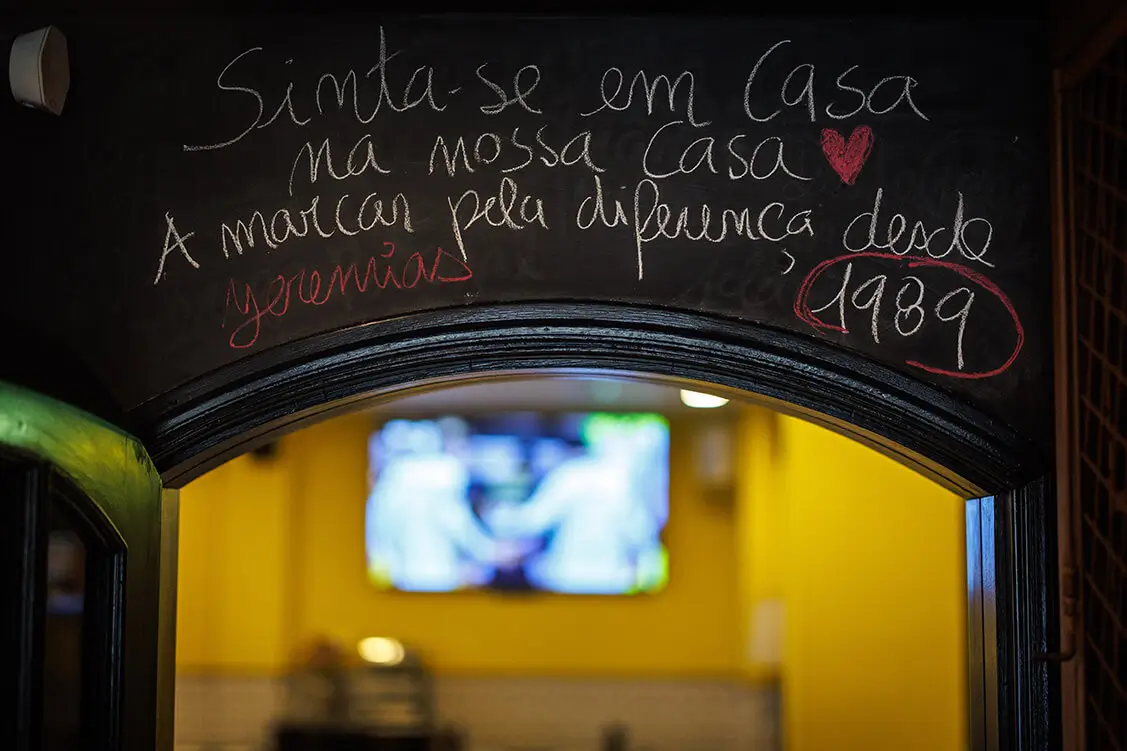 Sinta-se em Casa
na nossa Casa
A marcar pela diferença, desde
Jeremias 1989